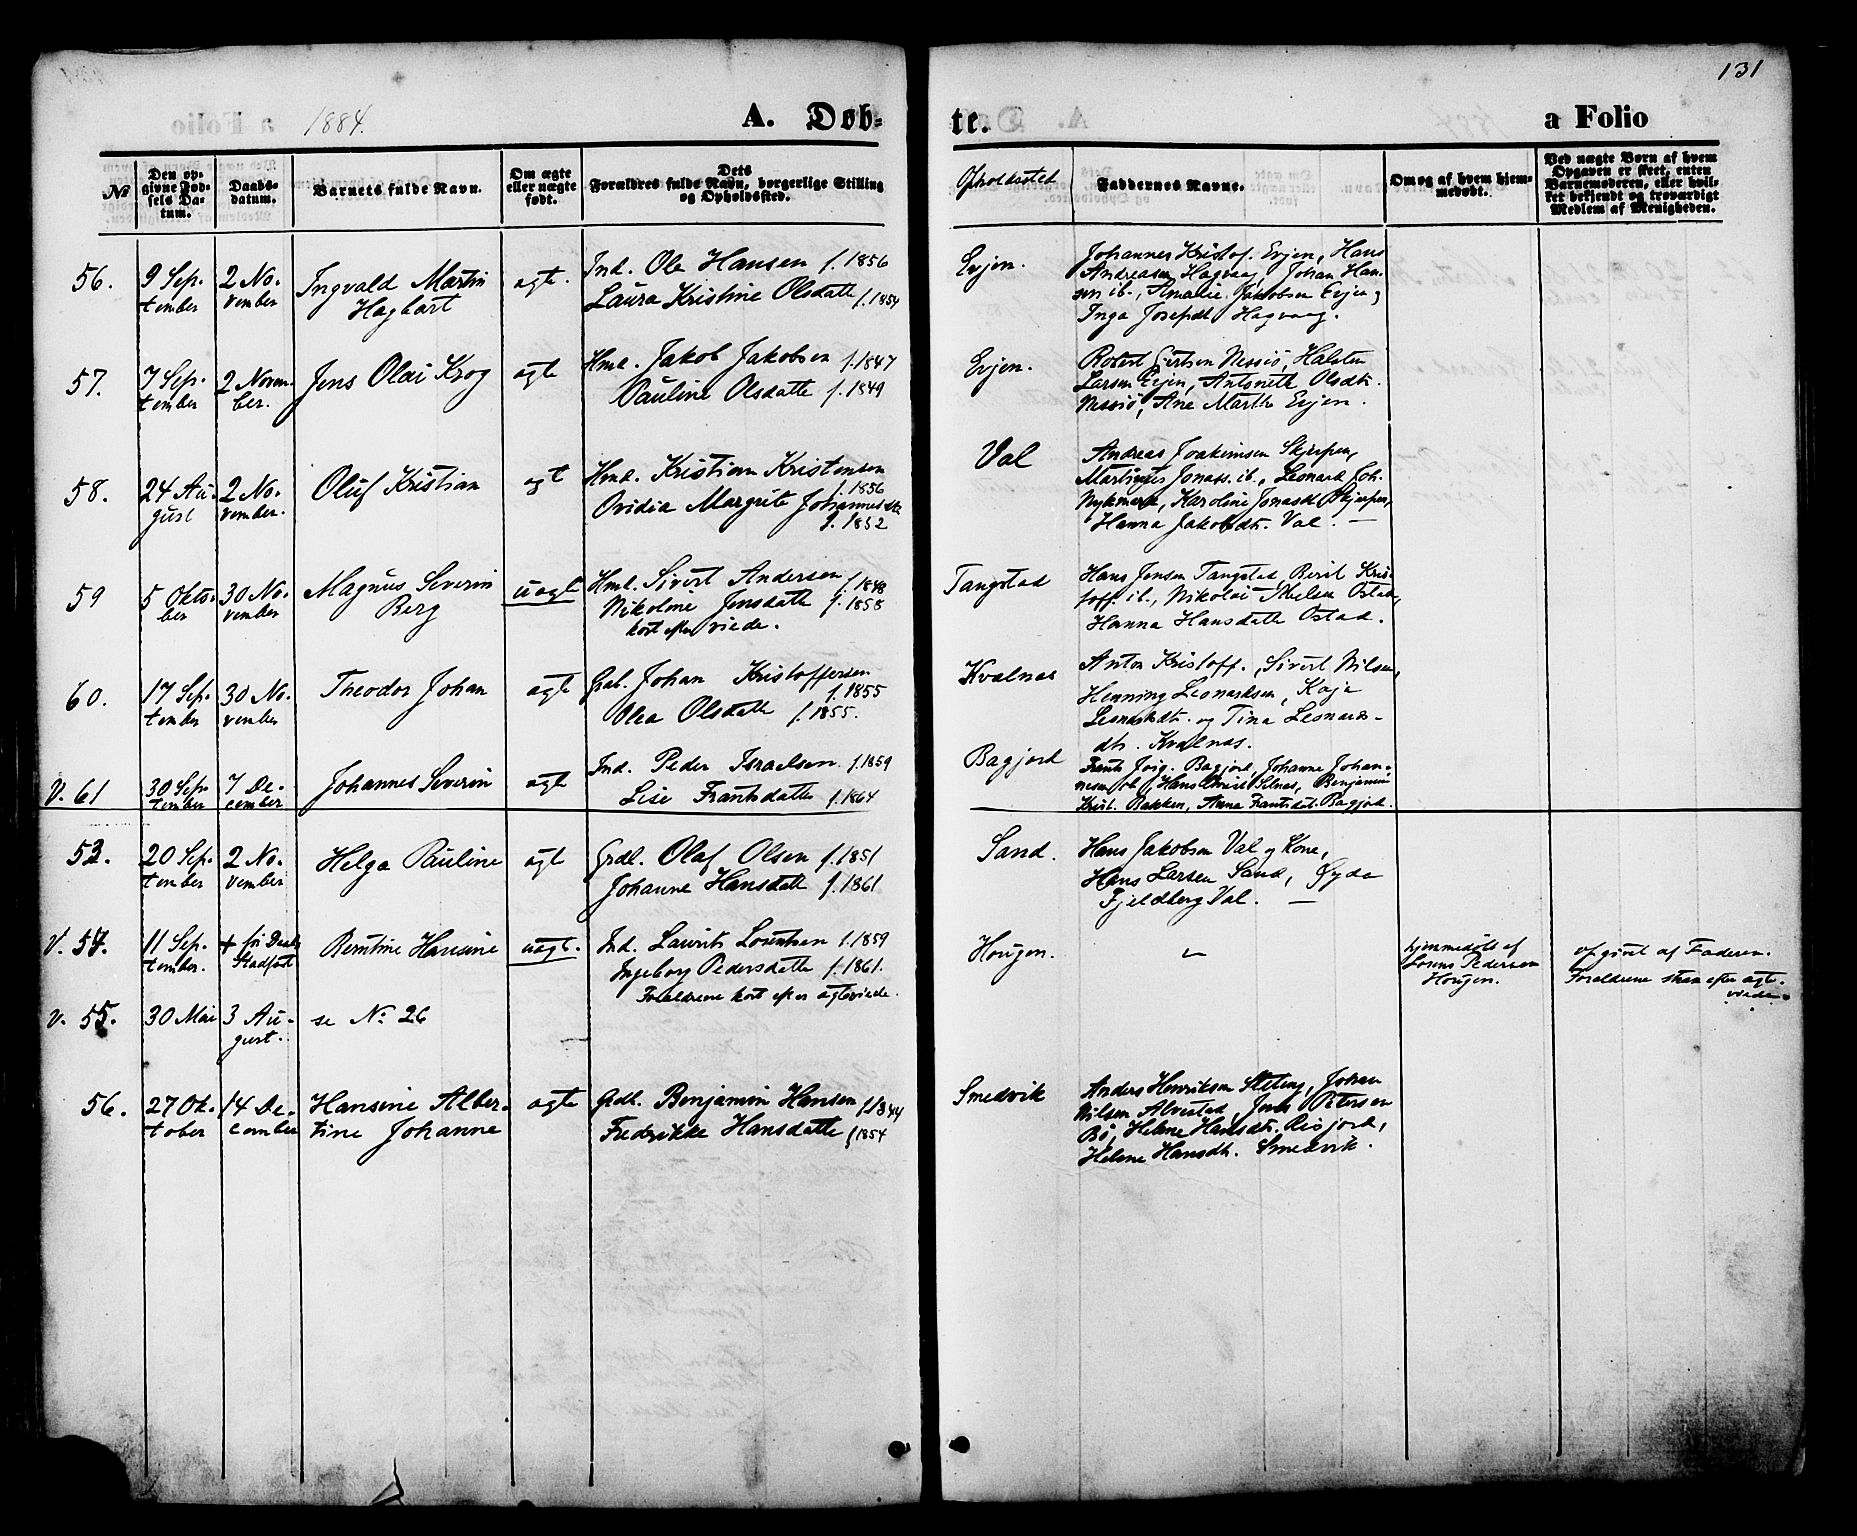 131
1884.
A. Døb-
te.
a Folio
No
Den op-
givne Fød-
sels Da-
tum.
Daabs-
datum.
Barnets fulde Navn.
Om ægte
eller uægte
født.
Dets
Forældres fulde Navn, borgerlige Stilling
og Opholdssted.
Opholdssted
Faddernes Navne.
Om og af hvem hjem-
medøbt.
Ved uægte Børn af hvem
Opgaven er skeet, enten
Barnemoderen, eller hvil-
ket bekjendt og troværdigt
Medlem af Menigheden.
56.
9 Sep-
tember
2 No-
vember
Ingvald Martin
Hagbart
ægte.
Ind. Ole Hansen f. 1856
Laura Kristine Olsdatte f. 1854
Evjen.
Johannes Kristof. Evjen, Hans
Andreasen Hagvaag, Johan Han-
sen ib., Amalie Jakobsen Evjen og
Inga Josefsdt. Hagvaag.
57.
7 Sep-
tember
2 Novem-
ber.
Jens Olai Krog
ægte
Hml. Jakob Jakobsen f. 1847
Pauline Olsdatte f. 1849
Evjen.
Robert Gertsen Nessiö, Halsten
Larsen Evjen, Antonette Olsdtr.
Nessiö, Ane Marthe Evjen.
58.
24 Au-
gust
2 No-
vember.
Oluf Kristian
ægt
Hml. Kristian Kristensen
f. 1856
Ovidia Margrete Johannesdtr
f. 1852
Val
Andreas Joakimsen Skjerpen,
Jonass. ib., Leonard Joh.
Nykmark, Karoline Jonasdt. Skjerpen,
Hanna Jakobdtr. Val. —
59
5 Okto-
ber
30 No-
vember
Magnus Severin
Berg
uægt
Hml. Sivert Andersen f. 1848
Nikoline Jensdatte f. 1858
kort efter viede.
Tangstad
Hans Jensen Tangstad, Berit Kris-
toff. ib., Nikolai Nielsen Ostad,
Hanna Hansdatte Ostad.
60.
17 Sep-
tember
30 No-
vember
Theodor Johan
ægte
Grb. Johan Kristoffersen
f. 1855
Olea Olsdatte f. 1855.
Kvalnæs
Anton Kristoff., Sivert Nilsen,
Henning Leonardsen, Kaja
Leonardsdt. og Tina Leonards-
dtr. Kvalnæs.
V. 61
30 Sep-
tember
7 De-
cember
Johannes Severin
ægt
Ind. Peder Israelsen f. 1859
Lise Frantsdatte f. 1864
Bagjord
Frants Jørg. Bagjord, Johanne Johan-
nesen ib., Hans Silnæs, Benjamin
Krist. Bakken, Anna Frantsdat. Bagjord.
53.
20 Sep-
tember
2 No-
vember
Helga Pauline
ægt
Grdl. Olaf Olsen f. 1851
Johanne Hansdatte f. 1861
Sand.
Hans Jakobsen Val og Kone,
Hans Larsen Sand, Gyda
Fjeldberg Val. —
V. 54.
11 Sep-
tember.
+ før Daabs
Stadfæst
Berntine Hansine
uægt.
Ind. Laurits Lorentsen f. 1859
Ingeborg Pedersdatte f. 1861.
Forældrene kort efter ægteviede.
Hougen.
—
hjemmedøbt af
Lorens Pedersen
Hougen.
opgivet af Faderen.
Forældrene strax efter ægte-
viede.
V. 55.
30 Mai
3 Au-
gust.
se No 26
56.
27 Ok-
tober
14 De-
cember
Hansine Alber-
tine Johanne
ægte
Grdl. Benjamin Hansen f. 1844
Fredrikke Hansdatte f. 1854
Smedvik
Anders Henriksen Steting, Johan
Nilsen Alvestad, Jens Petersen
Bø, Helene Hansdt. Risjord,
Helene Hansdt. Smedvik.